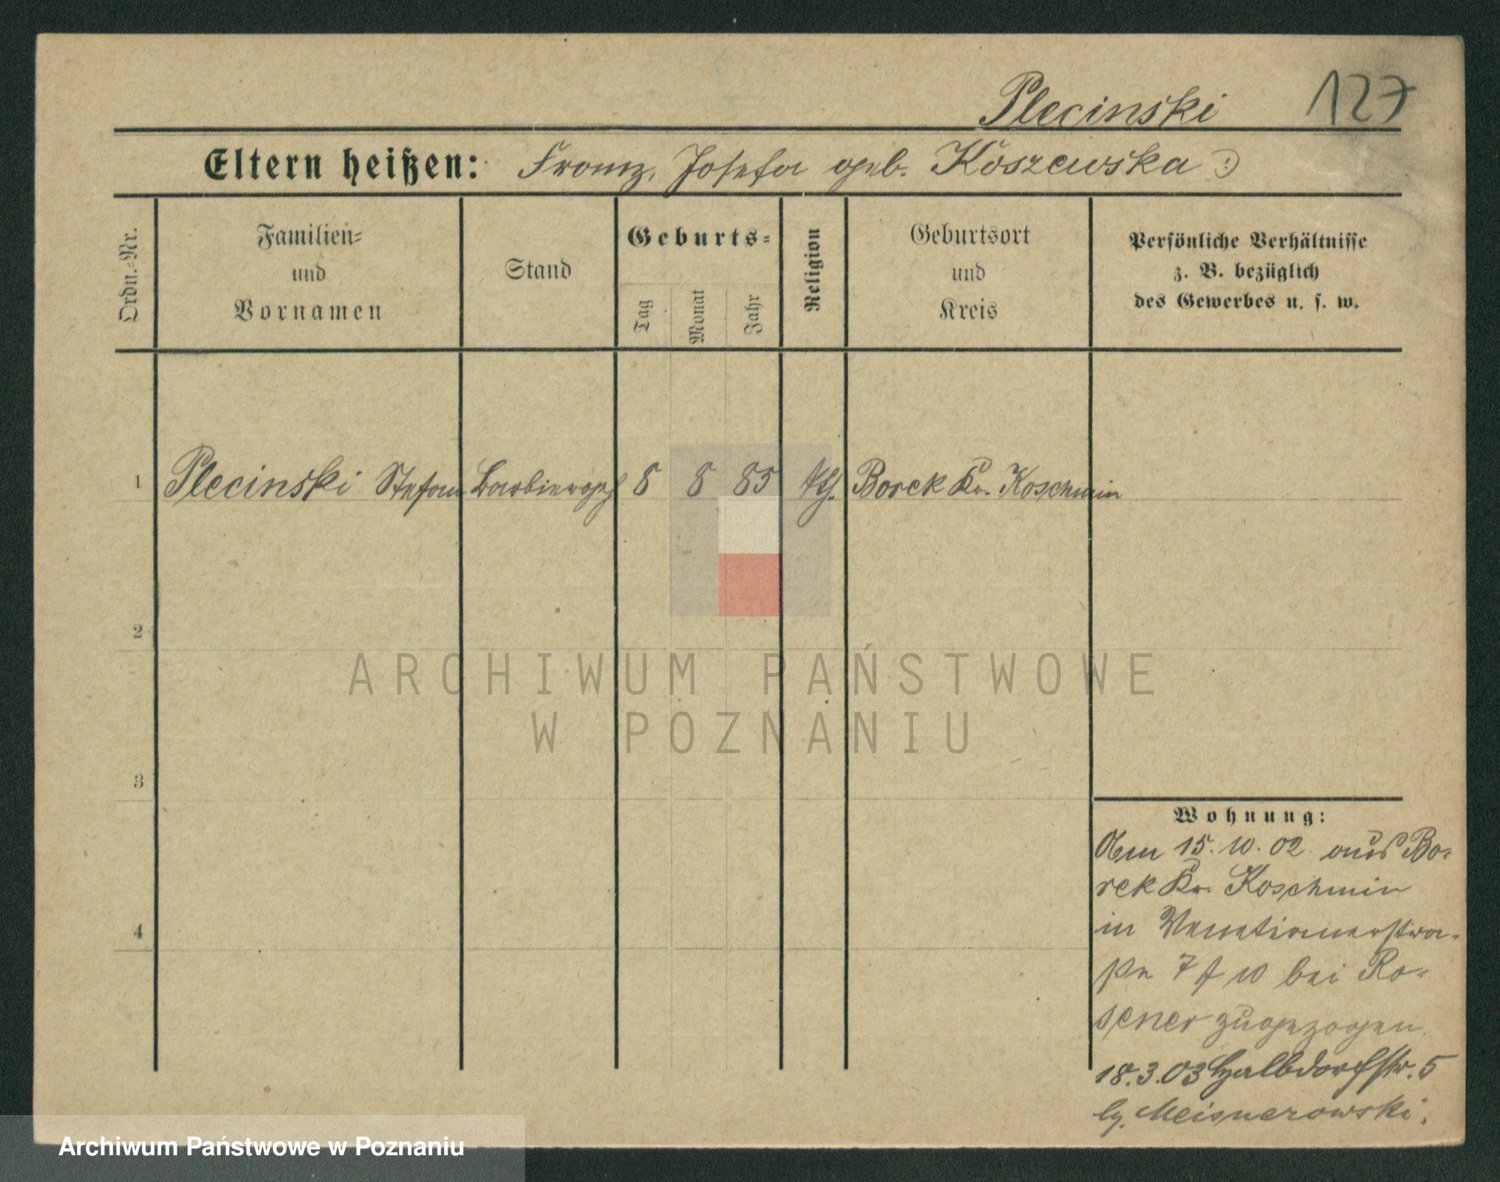 Plecinski 127
Eltern heißen: Franz, Josefa geb. Koszewska
Ordn.-Nr.
Familien-
und
Vornamen
Stand
Geburts-
Tag
Monat
Jahr
Religion
Geburtsort
und
Kreis
Persönliche Verhältnisse
z. B. bezüglich
des Gewerbes u. s. w.
1 Plecinski Stefan Barbiergeh 8 8 85 kth. Borek Kr. Koschmin
2
3
4
Wohnung:
Am 15. 10. 02 aus Bo-
rek Kr. Koschmin
in Venetianerstra-
ße 7 10 bei Ro-
sener zugezogen.
18.3.03 Halbdorfstr. 5
Meisnerowski.
ARCHIWUM PAŃSTWOWE
W POZNANIU
Archiwum Państwowe w Poznaniu